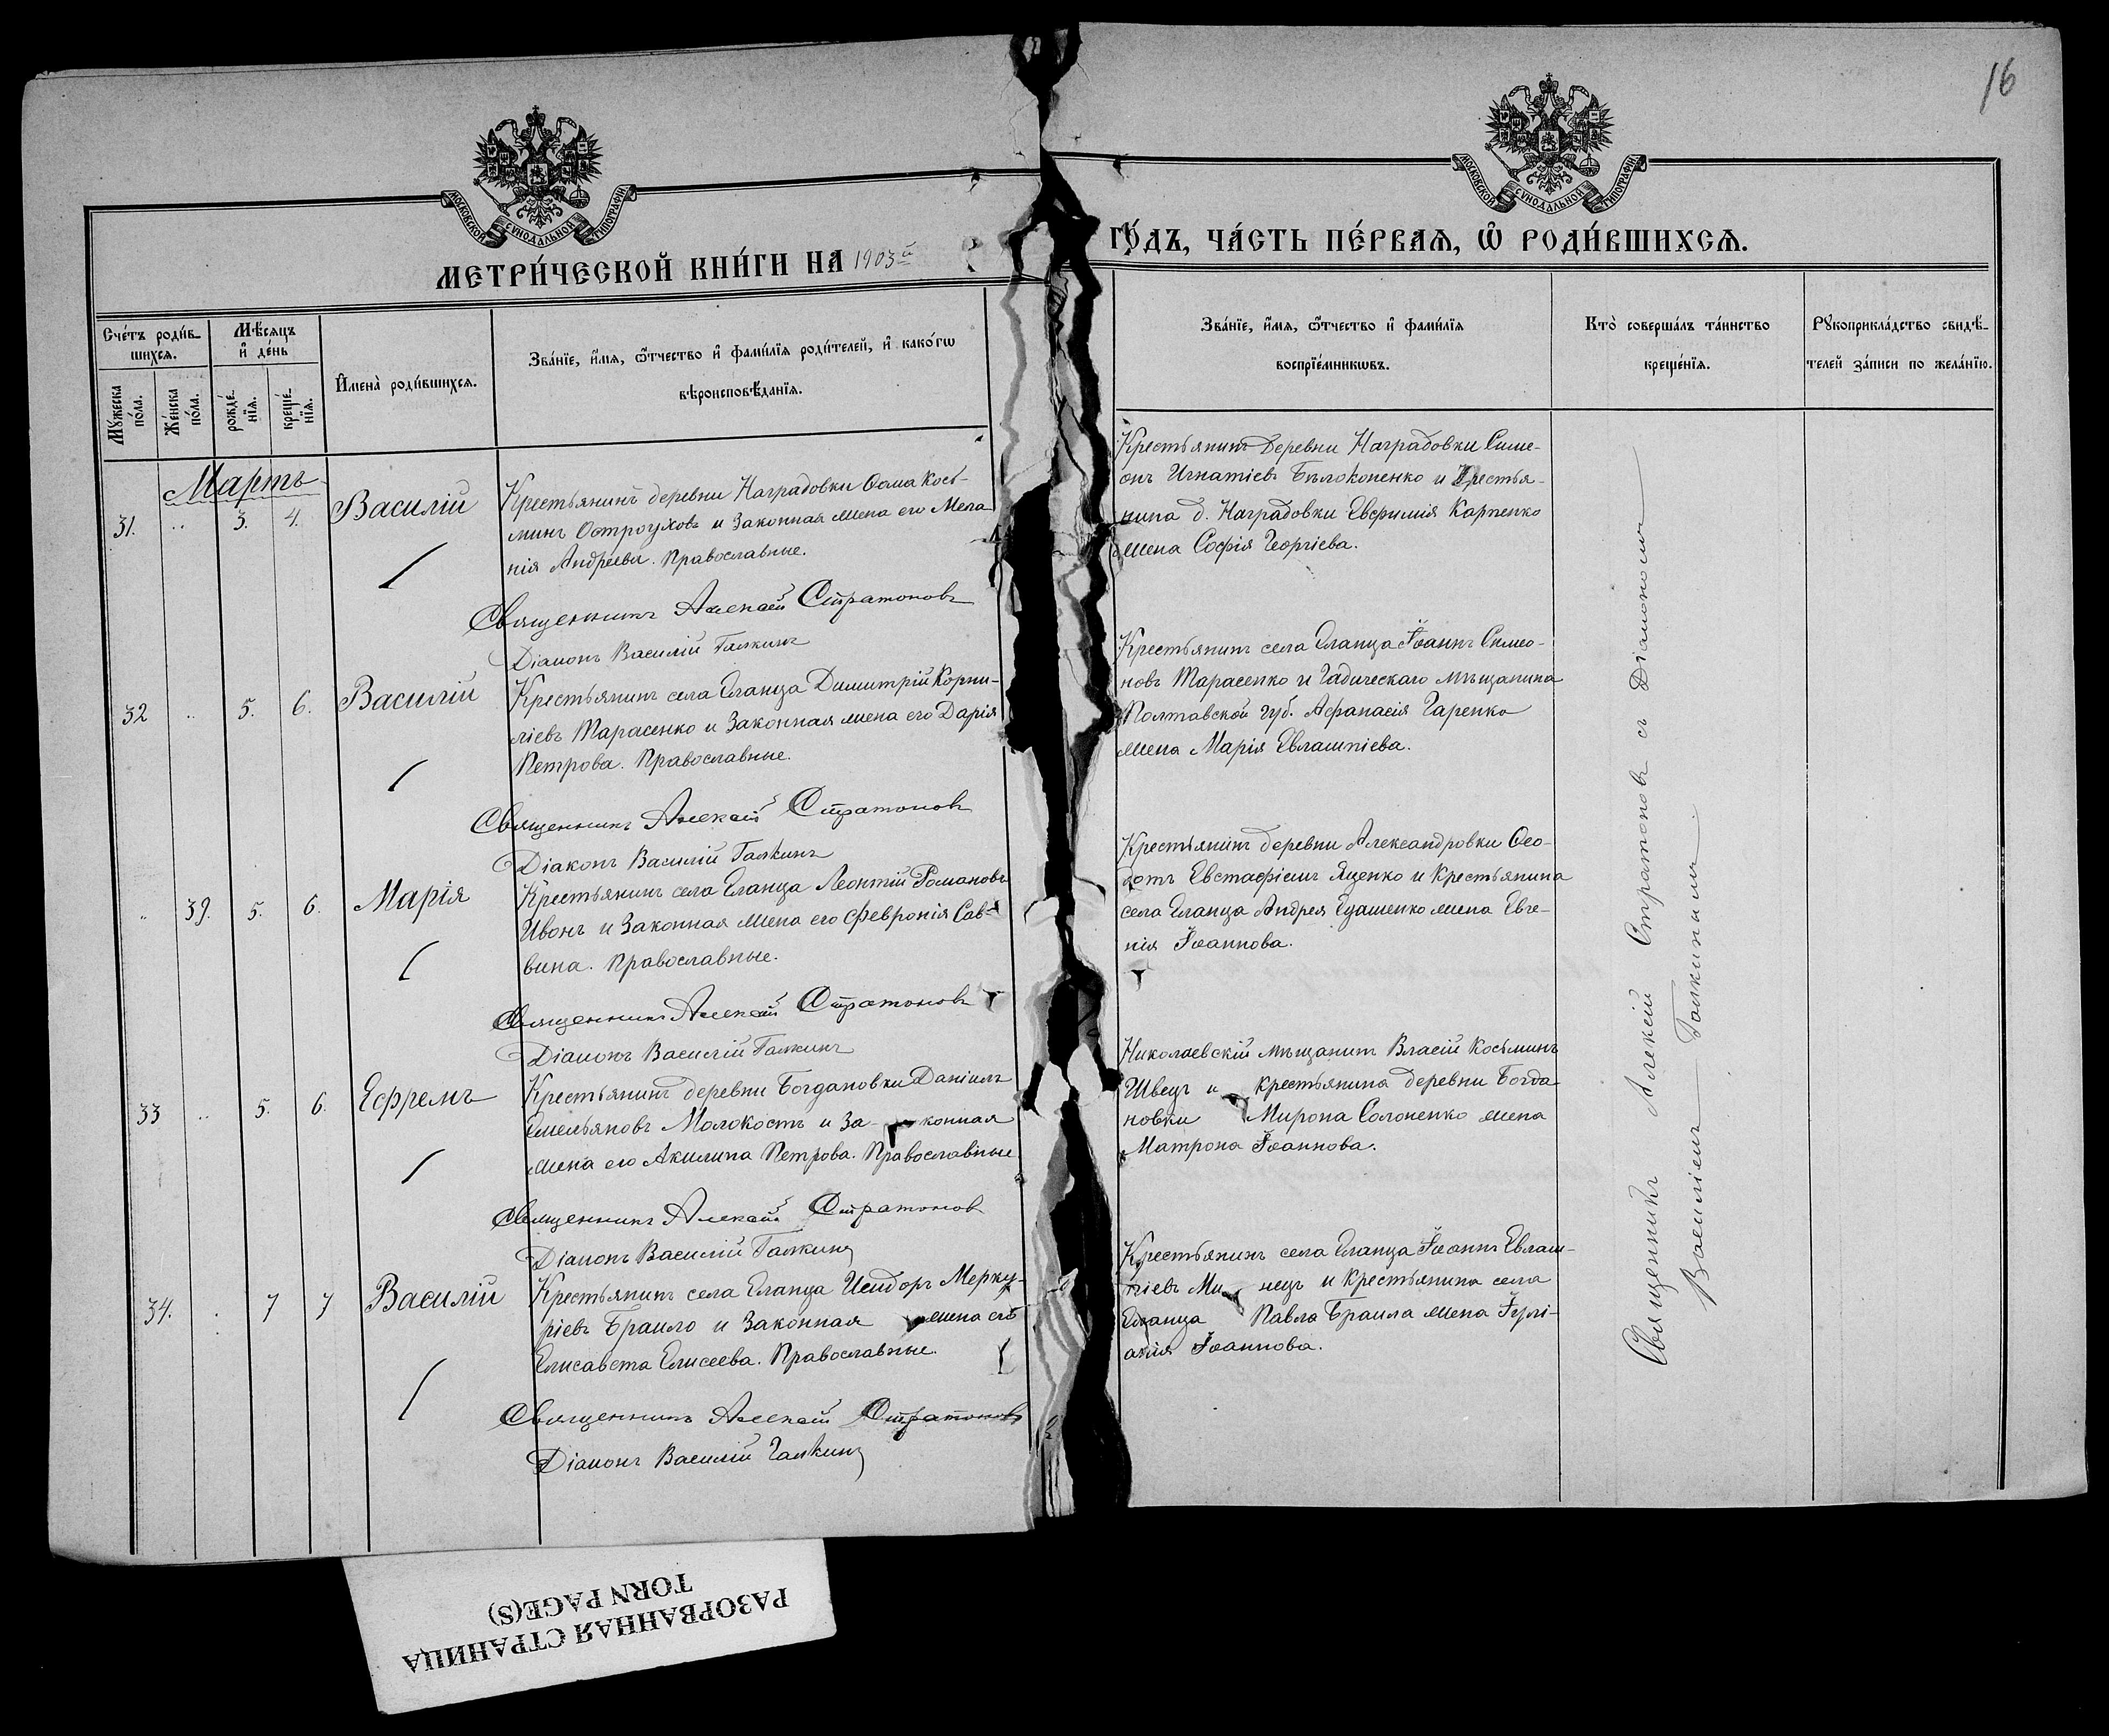 16
МОСКОВСКОЙ СѴНОДАЛЬНОЙ ТИПОГРАФІИ
МОСКОВСКОЙ СѴНОДАЛЬНОЙ ТИПОГРАФІИ
МЕТРИ́ЧЕСКОЙ КНИ́ГИ НА 1903й
ГО́ДЪ, ЧА́СТЬ ПЕ́РВАѦ, Ѽ РОДИ́ВШИХСѦ.
Сче́тъ роди́в-
шихсѧ.
Мꙋжеска
по́ла.
Же́нска
по́ла.
Мѣ́сѧцъ
и҆ де́нь
рожде́-
нїѧ.
креще́-
нїѧ.
И҆мена̀ роди́вшихсѧ.
Зва́нїе, и҆́мѧ, ѻ҆́тчество и҆ фами́лїѧ роди́телей, и҆ како́гѡ
вѣроисповѣ́данїѧ.
Зва́нїе, и҆́мѧ, ѻ҆́тчество и҆ фами́лїѧ
воспрїе́мникѡвъ.
Кто̀ соверша́лъ та́инство
креще́нїѧ.
Рꙋкоприкла́дство свидѣ́-
телей за́писи по жела́нїю.
Мартъ
31. „ 3. 4. Василій
Крестьянинъ деревни Наградовки Ѳома Кось-
минъ Остроуховъ и законная жена его Мела-
нія Андреева. Православные.
Священникъ Алексій Стратоновъ
Діаконъ Василій Галкинъ
Крестьянинъ деревни Наградовки Симе-
онъ Игнатіевъ Бѣлоконенко и крестья-
нина д. Наградовки Евфимія Карпенко
жена Софія Георгіева.
32 „ 5. 6. Василій
Крестьянинъ села Еланца Димитрій Корни-
ліевъ Тарасенко и законная жена его Дарія
Петрова. Православные.
Священникъ Алексій Стратоновъ
Діаконъ Василій Галкинъ
Крестьянинъ села Еланца Іоаннъ Симео-
новъ Тарасенко и Гадическаго мѣщанина
Полтавской губ. Афанасія Гаренко
жена Марія Евлампіева.
„ 39. 5. 6. Марія
Крестьянинъ села Еланца Леонтій Романовъ
Ивонъ и законная жена его Февронія Сав-
вина. Православные.
Священникъ Алексій Стратоновъ
Діаконъ Василій Галкинъ
Крестьянинъ деревни Александровки Ѳео-
дотъ Евстафіевъ Яценко и крестьянина
села Еланца Андрея жена Евге-
нія Іоаннова.
33 „ 5. 6. Ефремъ
Крестьянинъ деревни Богдановки Даніилъ
Емельяновъ Молокостъ и за- конная
жена его Акилина Петрова. Православные
Священникъ Алексій Стратоновъ
Діаконъ Василій Галкинъ
Николаевскій мѣщанинъ Власій Косьминъ
Швецъ и крестьянина деревни Богда-
новки Мирона Солоненко жена
Матрона Іоаннова.
34. „ 7 7 Василій
Крестьянинъ села Еланца Исидоръ Мерку-
ріевъ Браило и законная жена его
Елисавета Елисеева. Православные.
Священникъ Алексій Стратоновъ
Діаконъ Василій Галкинъ
Крестьянинъ села Еланца Іоаннъ Евлам-
піевъ Ми нецъ и крестьянина села
Еланца Павла Браила жена Іулі-
анія Іоаннова.
Священникъ Алексій Стратоновъ съ Діакономъ
Василіемъ Галкинымъ
РАЗОРВАННАЯ СТРАНИЦА
TORN PAGE(S)